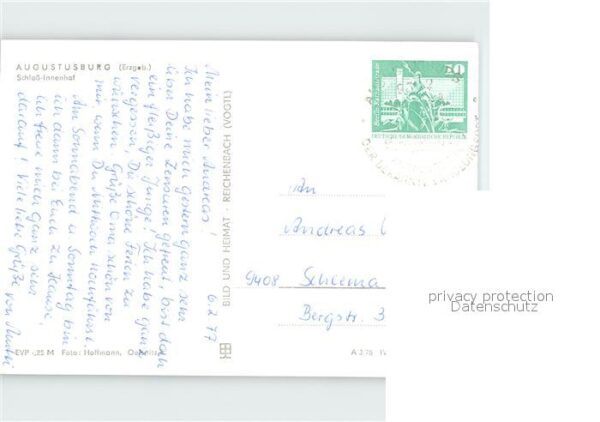 AUGUSTUSBURG (Erzgeb.)
Schloß-Innenhof
6.2.77
Mein lieber Andreas!
Ich habe mich gestern ganz sehr
über Deine Zensuren gefreut, bist doch
ein fleißiger Junge! Ich habe ganz
vergessen, Dir schöne Ferien zu
wünschen. Grüße Oma schön von
mir, wenn Du Mittwoch
Am Sonnabend u. Sonntag bin
ich dann bei Euch zu Hause,
ich freue mich ganz sehr
darauf! Viele liebe Grüße von Mutti
EVP -,25 M Foto: Hoffmann,
BILD UND HEIMAT · REICHENBACH (VOGTL)
A 3 76
50
DEUTSCHE DEMOKRATISCHE REPUBLIK
An
Andreas
9408 Schlema
Bergstr. 3
privacy protection
Datenschutz